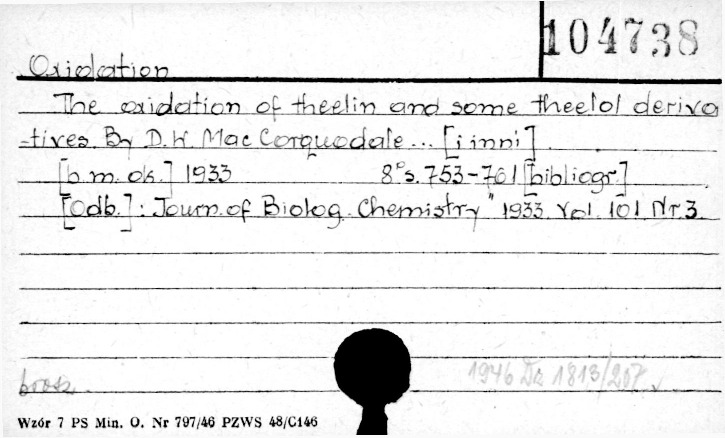 104738
Oxidation
The oxidation of theelin and some theelol deriva
-tives. By D.W. Mac Corquodale... [i inni]
[b.m. ok.] 1933 8° s. 753-761 [bibliogr.]
[Odb.]: "Journ. of Biolog. Chemistry" 1933. Vol. 101. Nr. 3.
1946 Da 1813/207
brosz.
Wzór 7 PS Min. O. Nr 797/46 PZWS 48/C146